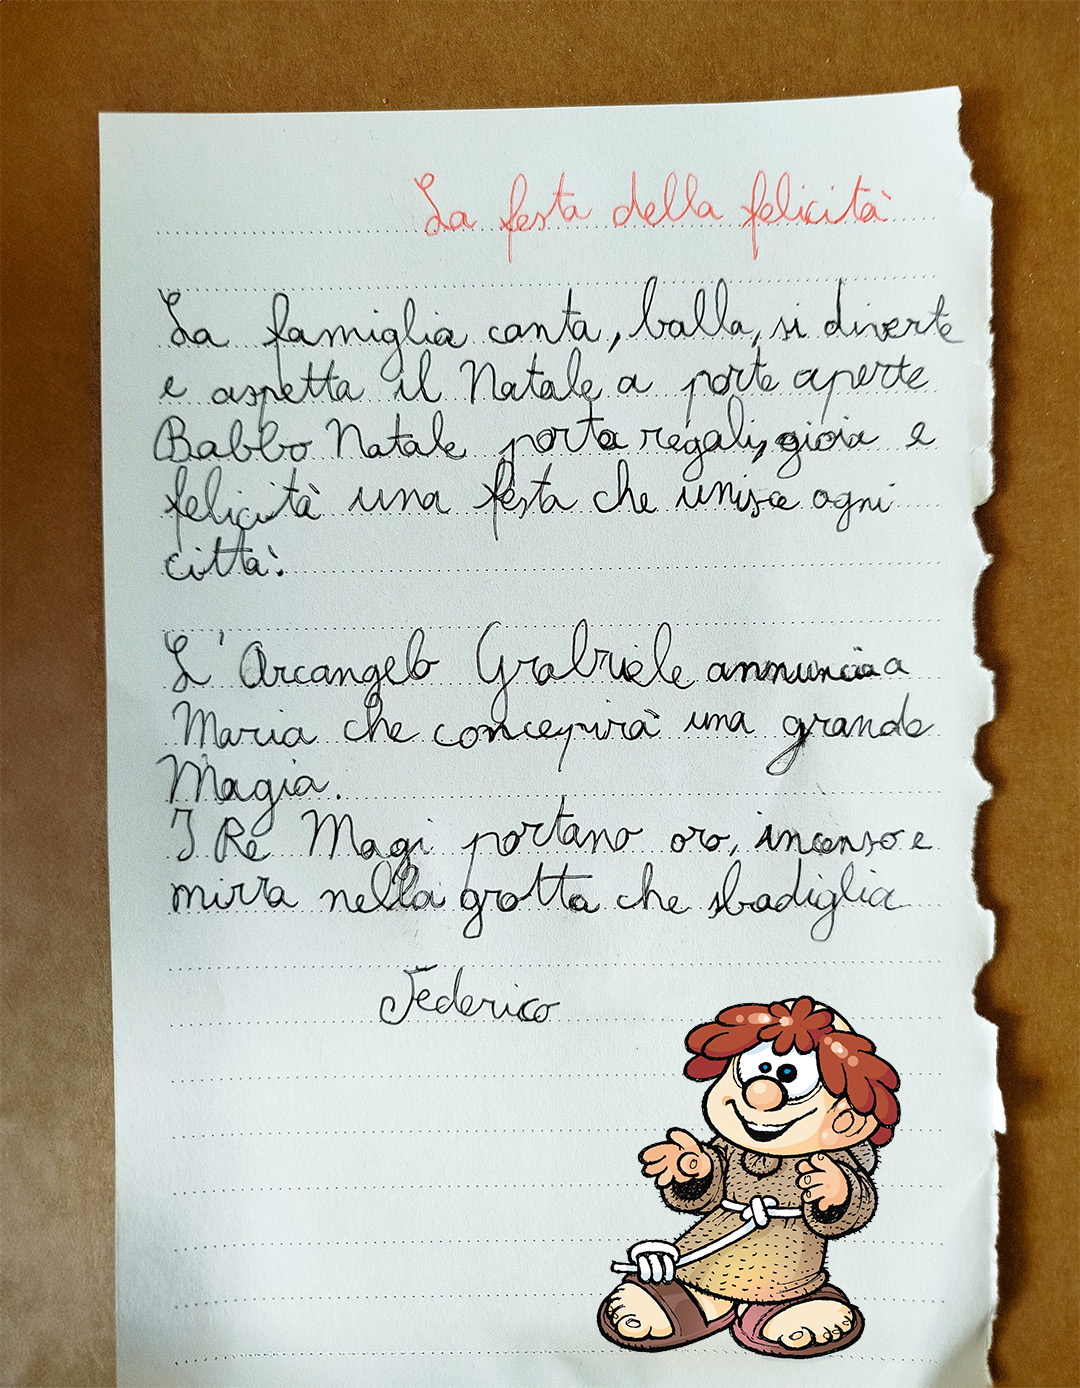 La festa della felicità
La famiglia canta, balla, si diverte
e aspetta il Natale a porte aperte
Babbo Natale porta regali, gioia e
felicità una festa che unisce ogni
città.
L'Arcangelo Gabriele annuncia a
Maria che concepirà una grande
Magia.
I Re Magi portano oro, incenso e
mirra nella grotta che sbadiglia
Federico